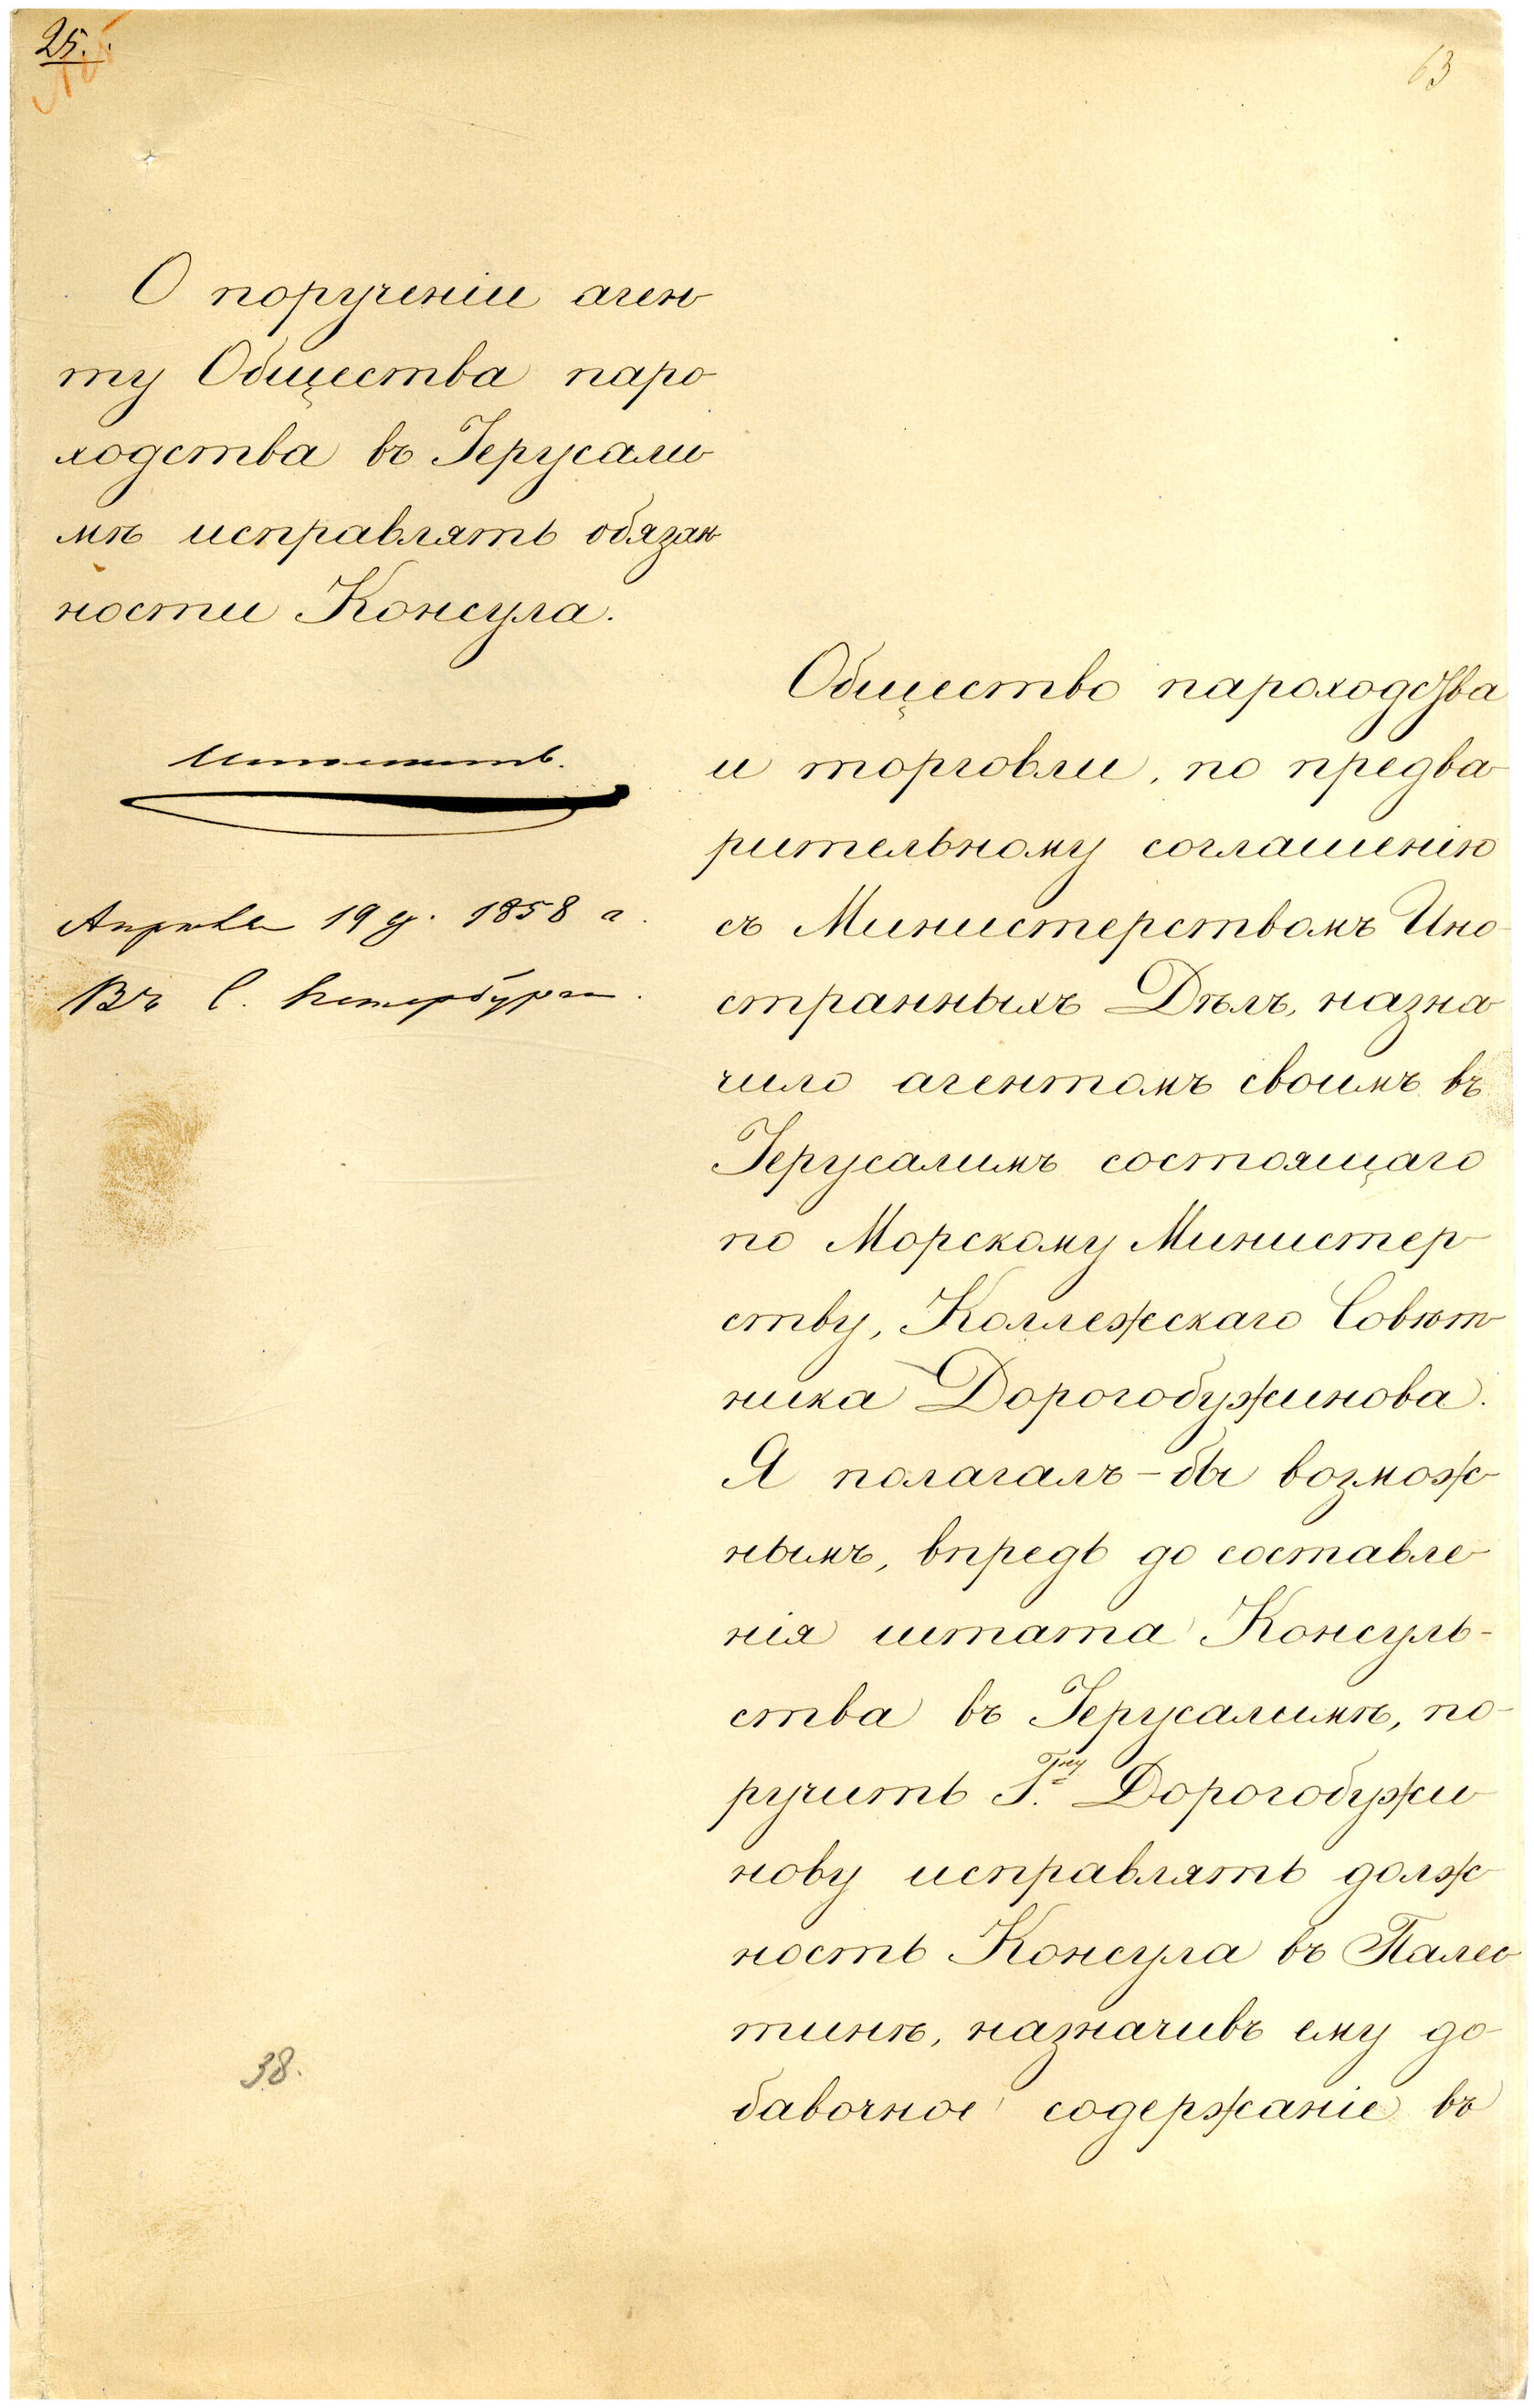 25.
63
О порученіи аген
ту Общества паро
ходства въ Іерусали
мѣ исправлять обязан
ности Консула.
Апрѣля 19 д. 1858 г.
Въ С. Петербургѣ.
Общество пароходства
и торговли, по предва
рительному соглашенію
съ Министерствомъ Ино-
странныхъ Дѣлъ, назна
чило агентомъ своимъ въ
Іерусалимъ состоящаго
по Морскому Министер
ству, Коллежскаго Совѣт
ника Дорогобужинова.
Я полагалъ-бы возмож
нымъ, впредь до составле
нія штата Консуль-
ства въ Іерусалимѣ, по-
ручить Г.ну Дорогобужи
нову исправлять долж
ность Консула въ Палес
тинѣ, назначивъ ему до
бавочное содержаніе въ
38.